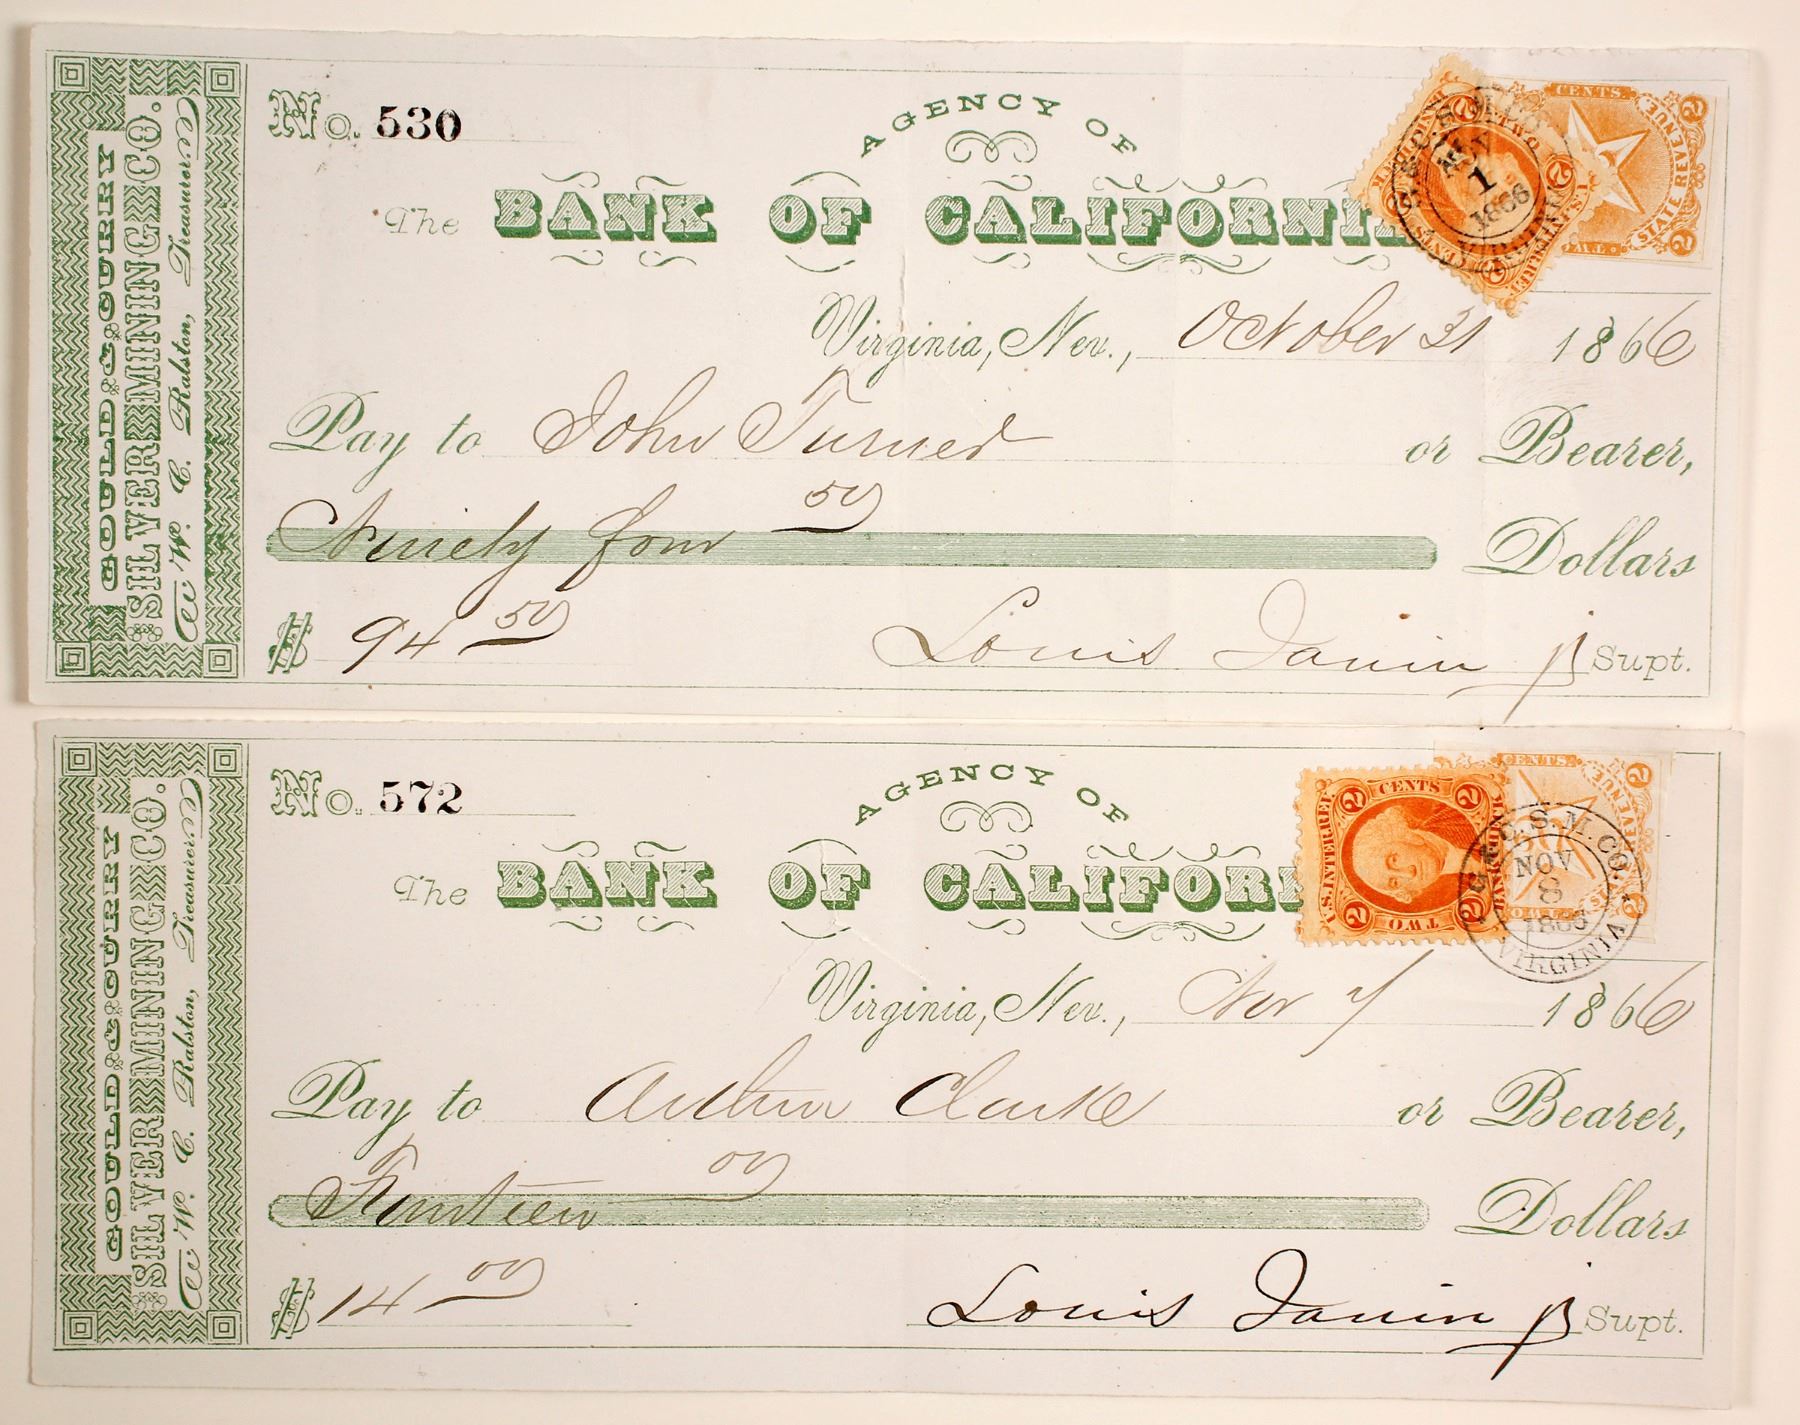 GOULD & CURRY
SILVER MINING CO.
W. C. Ralston, Treasurer
No. 530
AGENCY OF
The BANK OF CALIFORNIA
Virginia, Nev., October 31 1866
Pay to John Turner or Bearer,
Ninety four 50 Dollars
$ 94 50
Louis Janin Jr Supt.
CENTS.
STATE REVENUE
2
2
TWO
CENTS
U.S. INTER. REV.
2
NOV
1
1866
VIRGINIA
GOULD & CURRY
SILVER MINING CO.
W. C. Ralston, Treasurer
No. 572
AGENCY OF
The BANK OF CALIFOR
Virginia, Nev., Nov 7 1866
Pay to Arthur Clarke or Bearer,
Fourteen 00 Dollars
$ 14 00
Louis Janin Jr Supt.
2 CENTS 2
U.S. INTER. REV.
2 TWO 2
CENTS.
REVENUE
2
G & C. S. M. CO.
NOV
8
1866
VIRGINIA